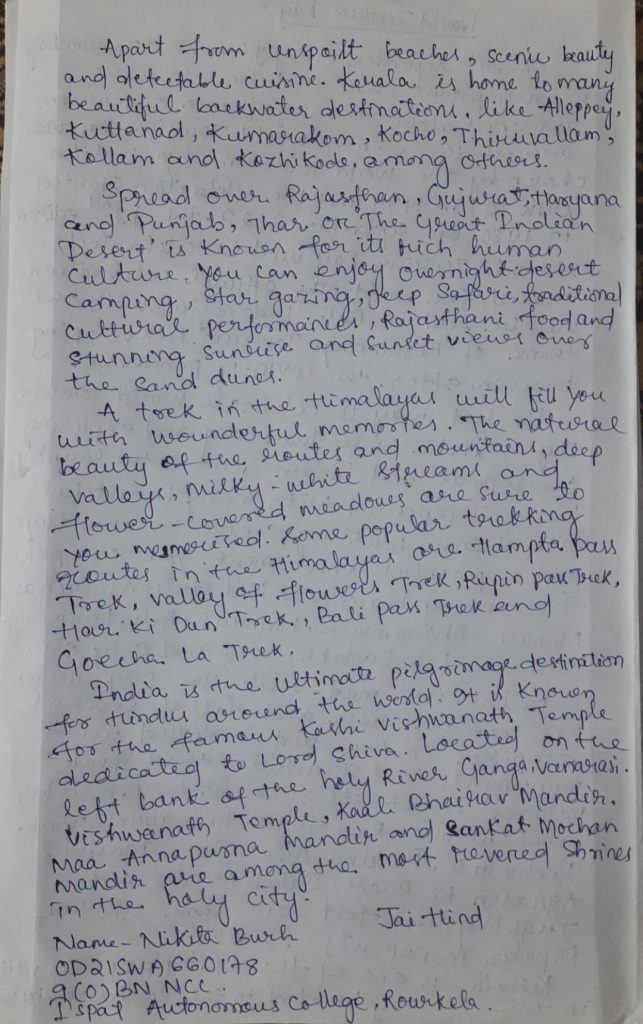 Apart from unspoilt beaches, scenic beauty
and delectable cuisine. Kerala is home to many
beautiful backwater destinations. like Alleppey,
Kuttanad, Kumarakom, Kocho, Thiruvallam,
Kollam and Kozhikode, among others.
Spread over Rajasthan, Gujurat, Haryana
and Punjab, Thar or 'The Great Indian
Desert' is known for its rich human
Culture. You can enjoy overnight desert
Camping, Star gazing, Jeep Safari, traditional
cultural performances, Rajasthani food and
stunning sunrise and sunset views over
the sand dunes.
A trek in the Himalayas will fill you
with wounderful memories. The natural
beauty of the routes and mountains, deep
valleys, milky-white streams and
flower-covered meadows are sure to
you mesmerised. Some popular trekking
routes in the Himalayas are Hampta pass
Trek, valley of flowers Trek, Rupin pass Trek,
Har Ki Dun Trek, Bali pass Trek and
Goecha La Trek.
India is the ultimate pilgrimage destination
for Hindus around the world. It is known
for the famous Kashi Vishwanath Temple
dedicated to Lord Shiva. Located on the
left bank of the holy River Ganga. Vanarasi.
Vishwanath Temple, Kaali Bhairav Mandir,
Maa Annapurna Mandir and Sankat Mochan
Mandir are among the most revered Shrines
in the holy city.
Jai Hind
Name- Nikita Burh
OD21SWA660178
9(O) BN NCC.
Ispat Autonomous College, Rourkela.